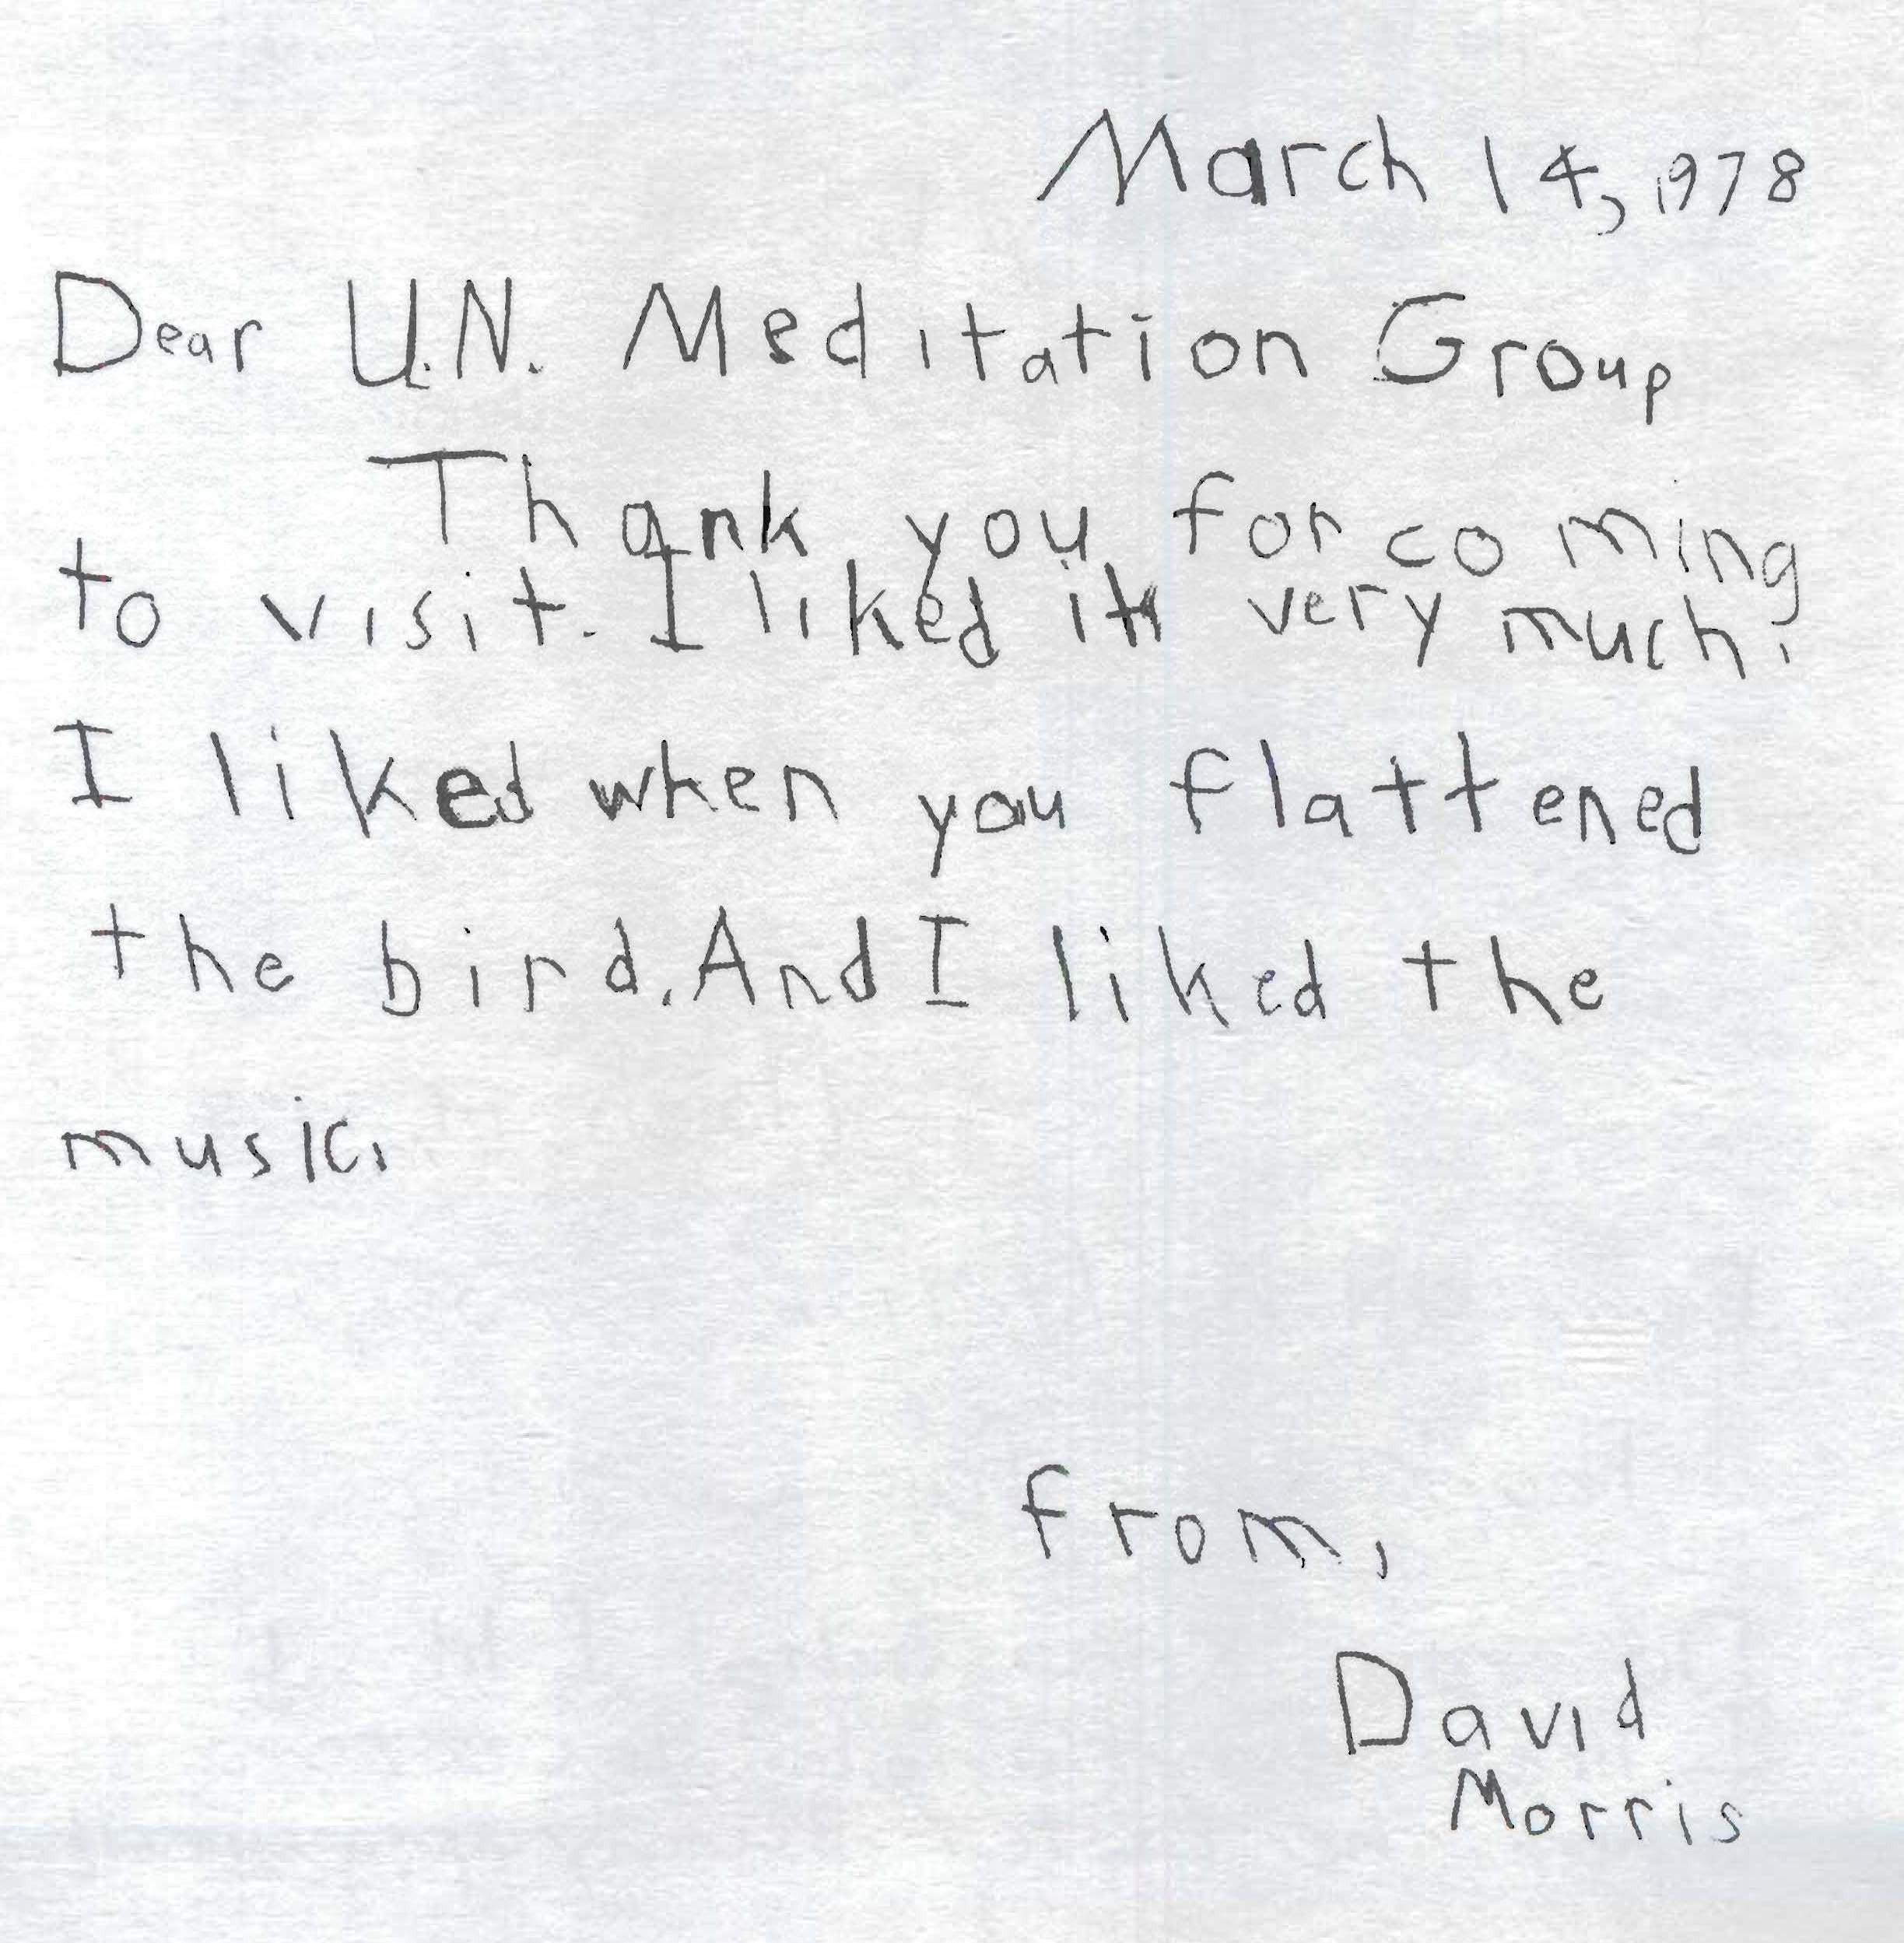 March 14, 1978
Dear U.N. Meditation Group
Thank you for coming
to visit. I liked it very much.
I liked when you flattened
the bird. And I liked the
music.
from,
David
Morris